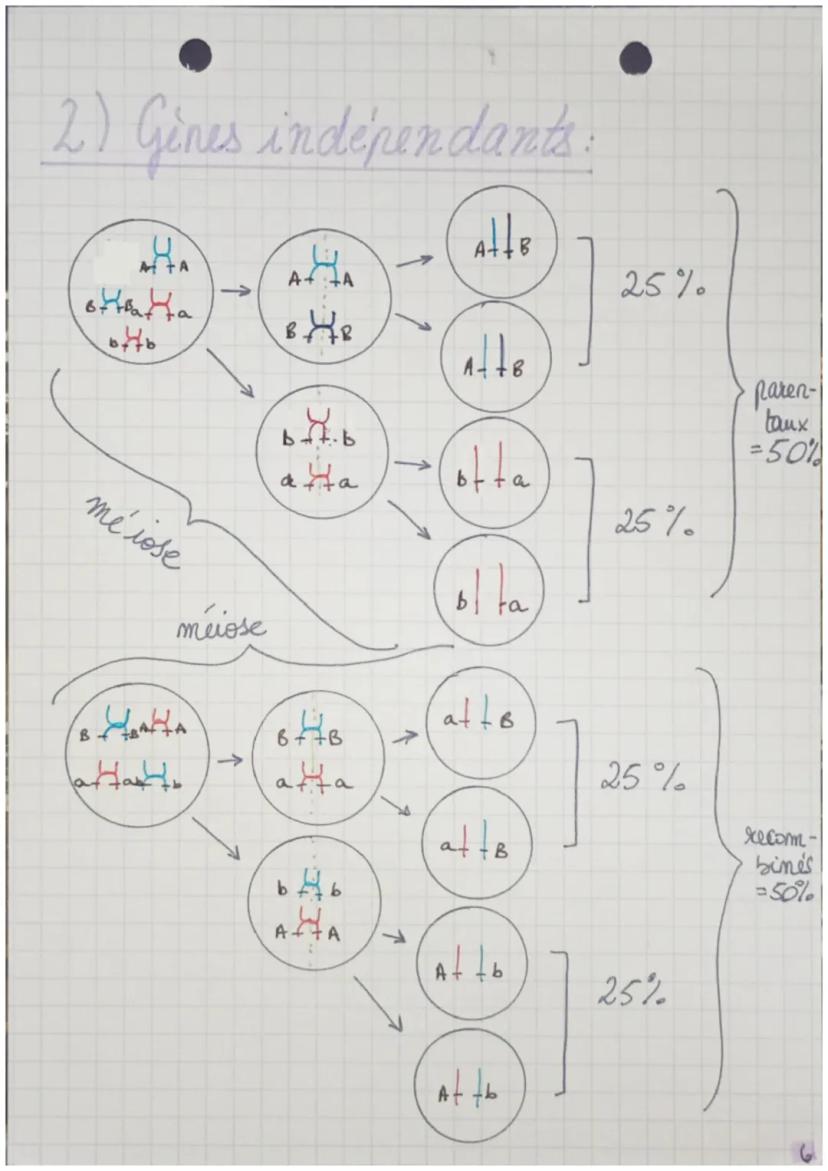 2) Gènes indépendants:
A A
B B a a
b b
A A
B B
A B
25%
A B
parentaux
=50%
b b
a a
b a
25%
b a
méiose
méiose
B B A A
a a b b
B B
a a
a B
25%
a B
recombinés
=50%
b b
A A
A b
25%
A b
6